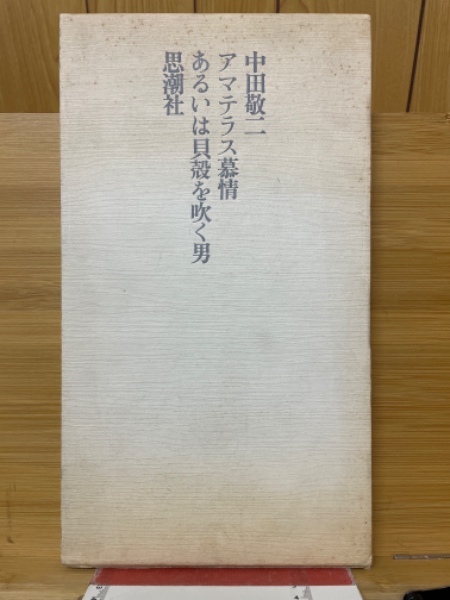 中田敬二
アマテラス慕情
あるいは貝殻を吹く男
思潮社